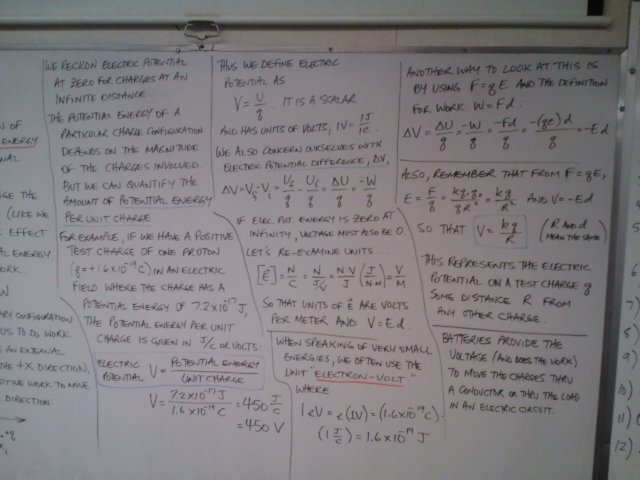 N OF
ENERGY
NAL
GE THE
(LIKE WE
EFFECT
AL ENERGY
ORK.
N
ARY CONFIGURATION
US TO DO WORK.
E AN EXTERNAL
THE +X DIRECTION,
SITIVE WORK TO MOVE
DIRECTION:
WE RECKON ELECTRIC POTENTIAL
AT ZERO FOR CHARGES AT AN
INFINITE DISTANCE.
THE POTENTIAL ENERGY OF A
PARTICULAR CHARGE CONFIGURATION
DEPENDS ON THE MAGNITUDE
OF THE CHARGES INVOLVED.
BUT WE CAN QUANTIFY THE
AMOUNT OF POTENTIAL ENERGY
PER UNIT CHARGE.
FOR EXAMPLE, IF WE HAVE A POSITIVE
TEST CHARGE OF ONE PROTON
(q=+1.6x10⁻¹⁹ C) IN AN ELECTRIC
FIELD WHERE THE CHARGE HAS A
POTENTIAL ENERGY OF 7.2x10⁻¹⁷ J,
THE POTENTIAL ENERGY PER UNIT
CHARGE IS GIVEN IN J/C OR VOLTS:
ELECTRIC POTENTIAL V = POTENTIAL ENERGY / UNIT CHARGE
V = 7.2x10⁻¹⁷ J / 1.6x10⁻¹⁹ C = 450 J/C
= 450 V
THUS WE DEFINE ELECTRIC
POTENTIAL AS
V = U/q. IT IS A SCALAR
AND HAS UNITS OF VOLTS; 1V = 1J/C.
WE ALSO CONCERN OURSELVES WITH
ELECTRIC POTENTIAL DIFFERENCE, ΔV,
ΔV = Vf - Vi = Uf/q - Ui/q = ΔU/q = -W/q
IF ELEC. POT ENERGY IS ZERO AT
INFINITY, VOLTAGE MUST ALSO BE 0.
LET'S RE-EXAMINE UNITS...
[E] = N/C = N/(J/V) = NV/J (J/NM) = V/M
SO THAT UNITS OF E ARE VOLTS
PER METER AND V = Ed.
WHEN SPEAKING OF VERY SMALL
ENERGIES, WE OFTEN USE THE
UNIT "ELECTRON-VOLT"
WHERE
1 eV = e(1V) = (1.6x10⁻¹⁹ C)·
(1 J/C) = 1.6x10⁻¹⁹ J
ANOTHER WAY TO LOOK AT THIS IS
BY USING F=qE AND THE DEFINITION
FOR WORK W=Fd:
ΔV = ΔU/q = -W/q = -Fd/q = -(qE)d/q = -Ed
ALSO, REMEMBER THAT FROM F=qE,
E = F/q = kq·q₀/qR² = kq/R² AND V=-Ed
SO THAT V = kq/R (R AND d MEAN THE SAME)
THIS REPRESENTS THE ELECTRIC
POTENTIAL ON A TEST CHARGE q
SOME DISTANCE R FROM
ANY OTHER CHARGE.
BATTERIES PROVIDE THE
VOLTAGE (AND DOES THE WORK)
TO MOVE THE CHARGES THRU
A CONDUCTOR OR THRU THE LOAD
IN AN ELECTRIC CIRCUIT.
6)
7)
8)
9)
10)
11)
12)